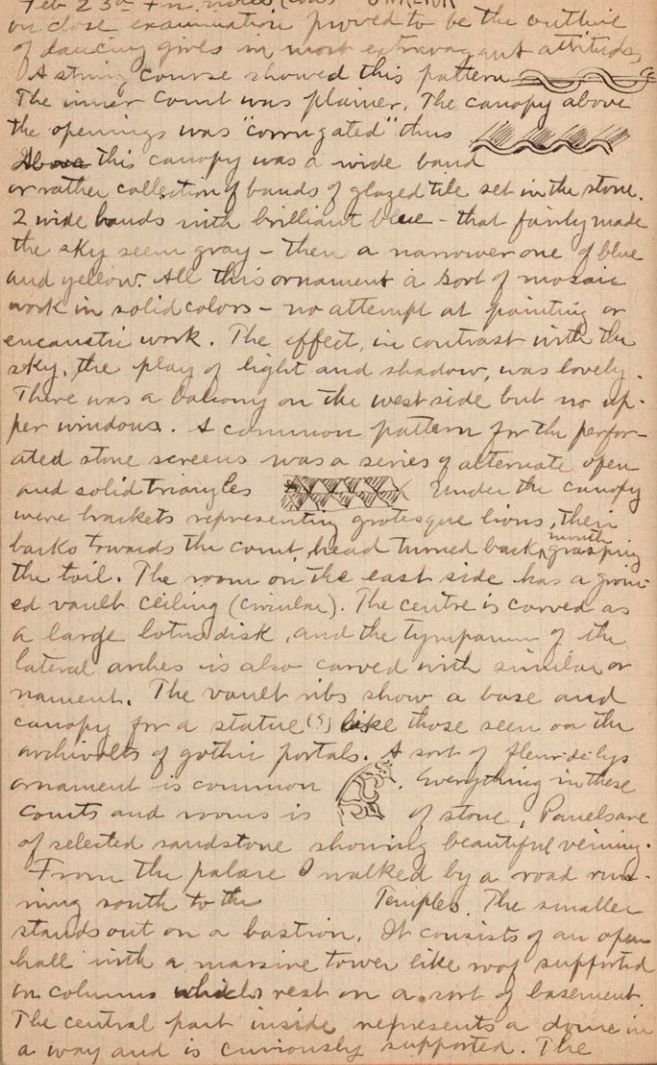 Feb 23rd Fri. notes (con) GWALIOR
on close examination proved to be the outline
of dancing girls in most extravagant attitudes
A string course showed this pattern
The inner court was plainer. The canopy above
the openings was "corrugated" thus
Above this canopy was a wide band
or rather collection of bands of glazed tile set in the stone.
2 wide bands with brilliant blue - that fairly made
the sky seem gray - then a narrower one of blue
and yellow. All this ornament a sort of mosaic
work in solid colors - no attempt at painting or
encaustic work. The effect, in contrast with the
sky, the play of light and shadow, was lovely.
There was a balcony on the west side but no up-
per windows. A common pattern for the perfor-
ated stone screens was a series of alternate open
and solid triangles Under the canopy
were brackets representing grotesque lions, their
backs towards the court, head turned back, mouth grasping
the tail. The room on the east side has a groin-
ed vault ceiling (circular). The centre is carved as
a large lotus disk, and the tympanum of the
lateral arches is also carved with similar or
nament. The vault ribs show a base and
canopy for a statue (s) like those seen on the
archivolts of gothic portals. A sort of fleur-de-lys
ornament is common . Everything in these
courts and rooms is of stone, Panels are
of selected sandstone showing beautiful veining.
From the palace I walked by a road run-
ning south to the Temples. The smaller
stands out on a bastion. It consists of an open
hall with a massive tower like roof supported
on columns which rest on a sort of basement.
The central part inside represents a dome in
a way and is curiously supported. The